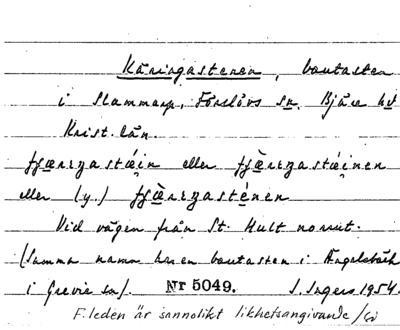 Käringastenen, bautasten
i Slammarp, Förslövs sn. Bjäre hd
Krist. län.
eller
eller (y.)
Vid vägen från St. Hult norrut.
(Samma namn har en bautasten i Ängelsbäck
i Grevie sn). Nr 5049. S. Ingers 1954.
F.leden är sannolikt likhetsangivande